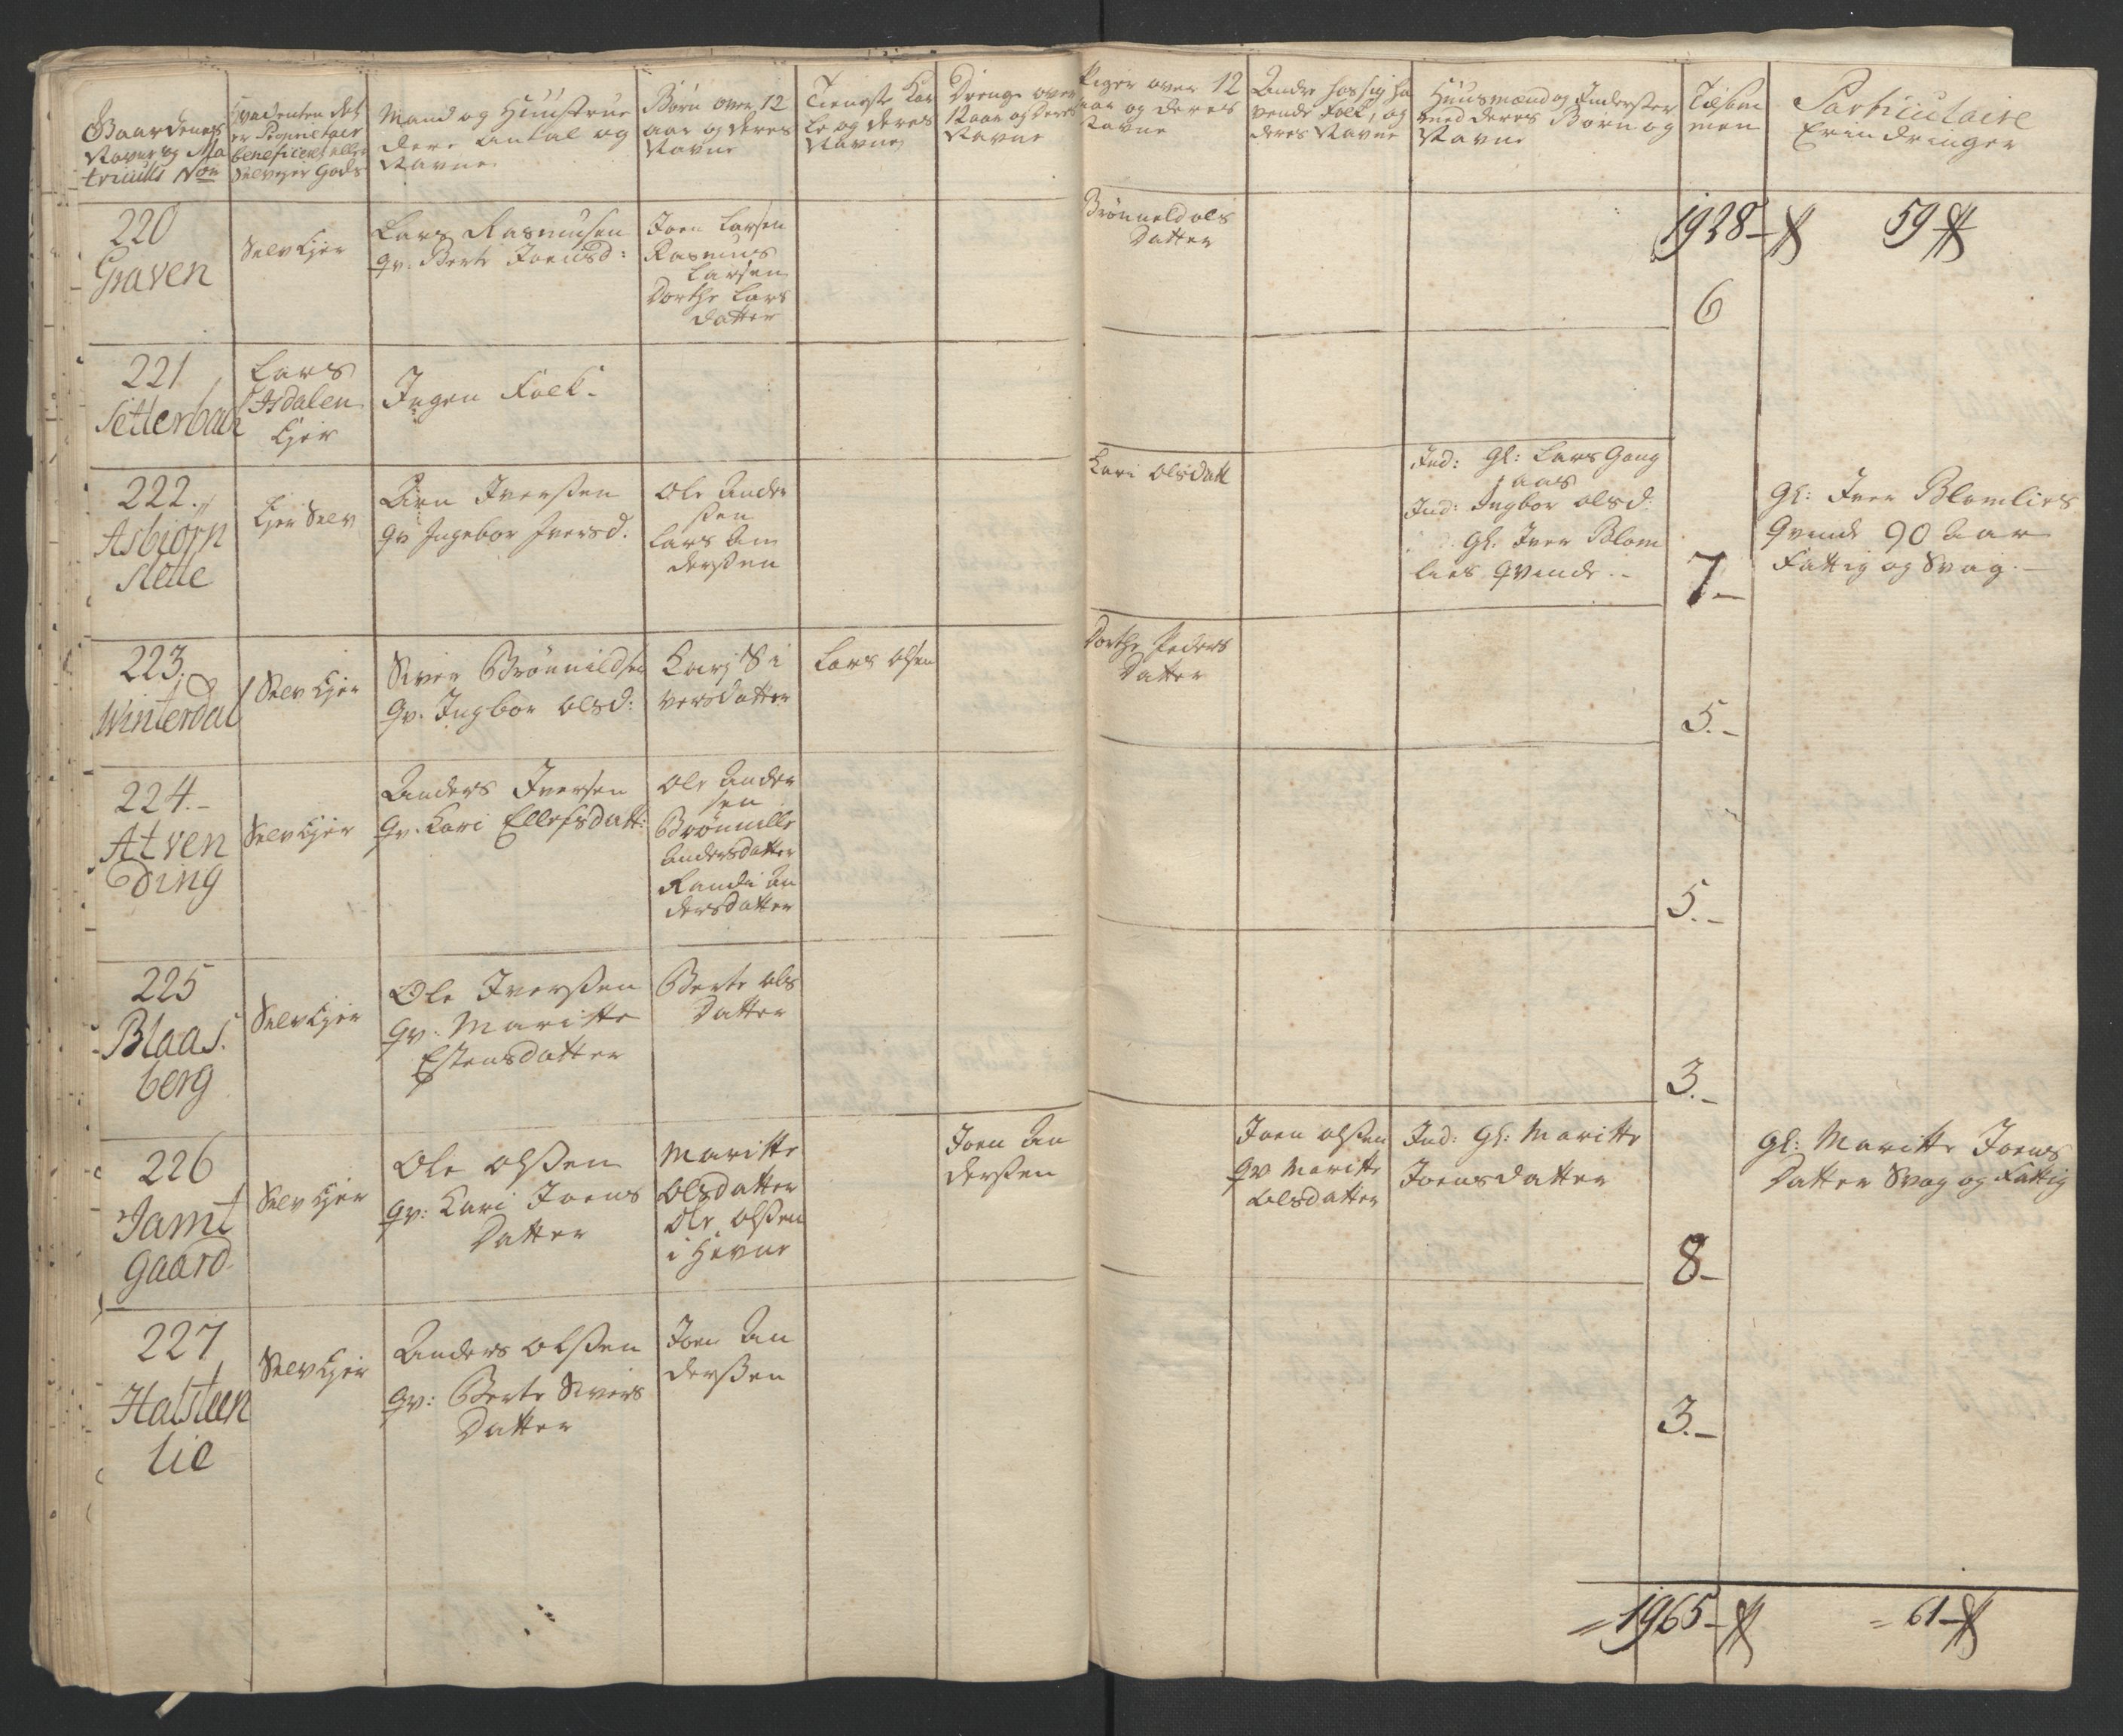 Gaardenes
Navne og Ma
triculs Non
Hvadenten det
er Proprietair
beneficeret eller
Selveyer Gods
Mand og Huustrue
dere Antal og
Navne
Børn over 12
aar og deres
Navne
Tieneste Kar
le og deres
Navne
Drenge over
12 aar og deres
Navne
Piger over 12
aar og deres
Navne
Andre hos sig ha
vende Folk, og
deres Navne
Huusmænd og Inderster
med deres Børn og
Navne
Tilsam
men
Particulaire
Erindringer
220
Graven
Selv Ejer
Lars Rasmusen
Qv. Berte Joensd:
Joen Larsen
Rasmus
Larsen
Dorthe Lars
datter
Brønneld ols
Datter
1928
59
6
221
Setterbak
Lars
Isdalen
Ejer
Ingen Folk.
222.
Asbiørn
slette
Ejer Selv
Arn Iverssen
Qv Ingebor Iversd.
Ole Ander
ssen
Lars An
derssen
Kari olsdatt
Ind: Gl: Lars Gang
aas
Ind: Ingbor olsd:
Gl: Iver Blom
lies Qvinde
7
Gl: Iver Blomlies
Qvinde 90 Aar
Fattig og Svag.
223.
Winterdal
Selv Ejer
Siver Brønnildsen
Qv. Ingbor olsd:
Kari Si
versdatter
Lars olsen
Dorthe Peders
Datter
5.
224.
Atven
ding
Selv Ejer
Anders Iversen
Qv. Kari Ellefsdatt:
Ole Ander
sen
Brønnille
Andersdatter
Randi An
dersdatter
5.
225
Blaas
berg
Selv Ejer
Ole Iverssen
Qv: Maritte
Estensdatter
Berte ols
Datter
3.
226
Jamt
gaard
Selv Ejer
Ole olssen
Qv: Kari Joens
Datter
Maritte
Olsdatter
Ole olssen
i Hevne
Joen An
derssen
Joen olssen
Qv Maritte
Olsdatter
Ind: Gl: Maritte
Joensdatter
8
Gl: Maritte Joens
Datter Svag og Fattig
227
Halsteen
lie
Selv Ejer
Anders olssen
Qv: Berte Sivers
Datter
Joen An
derssen
3.
= 1965
= 61